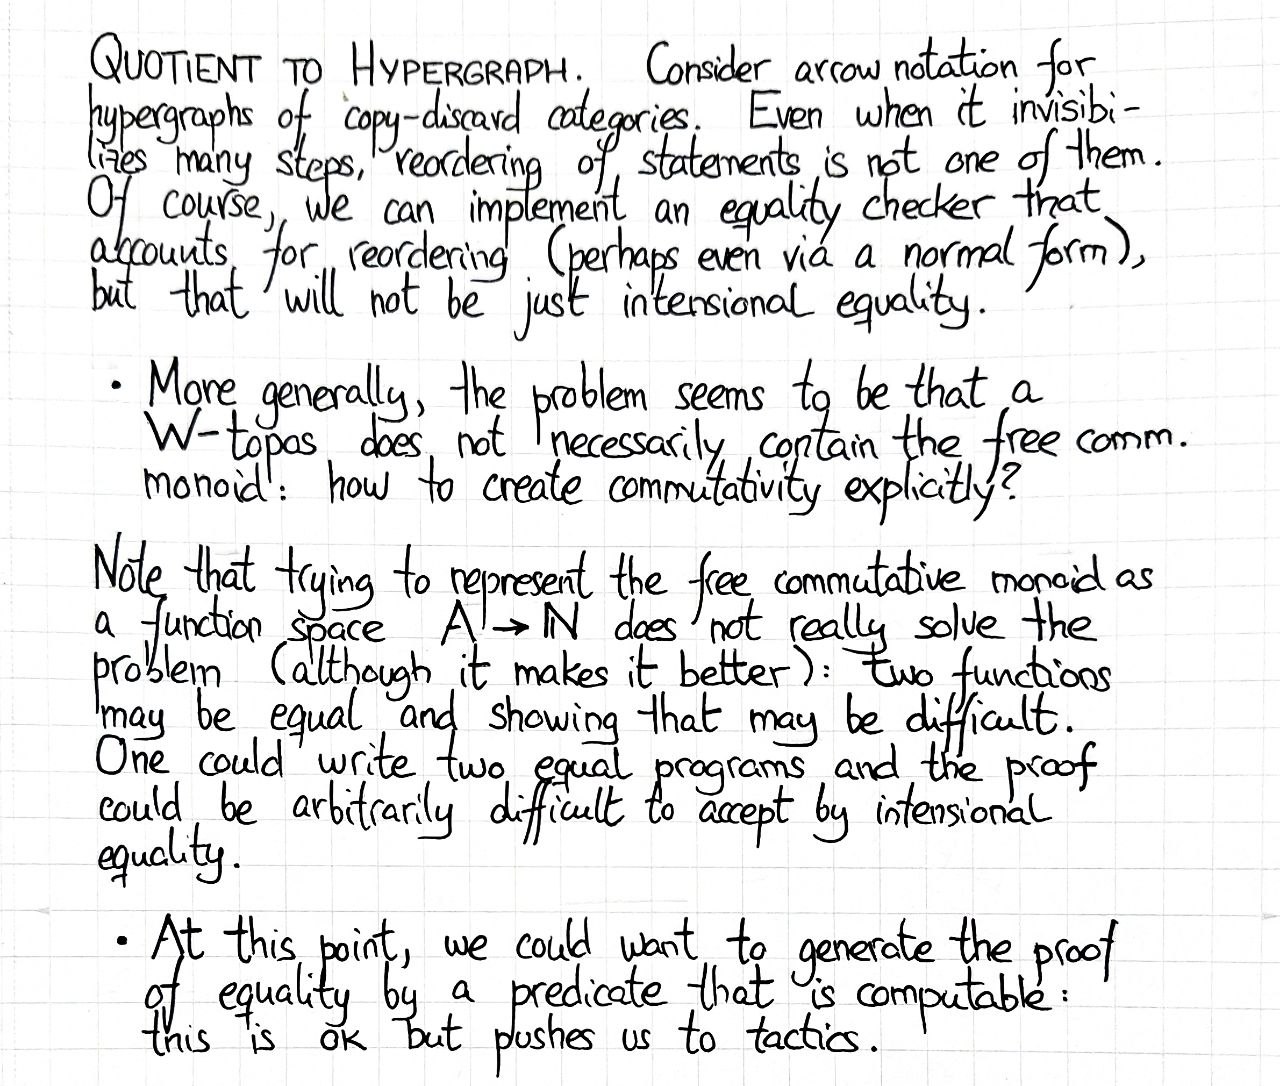 QUOTIENT TO HYPERGRAPH. Consider arrow notation for
hypergraphs of copy-discard categories. Even when it invisibi-
lizes many steps, reordering of statements is not one of them.
Of course, we can implement an equality checker that
accounts for reordering (perhaps even via a normal form),
but that will not be just intensional equality.
• More generally, the problem seems to be that a
W-topos does not necessarily contain the free comm.
monoid: how to create commutativity explicitly?
Note that trying to represent the free commutative monoid as
a function space A → ℕ does not really solve the
problem (although it makes it better): two functions
may be equal and showing that may be difficult.
One could write two equal programs and the proof
could be arbitrarily difficult to accept by intensional
equality.
• At this point, we could want to generate the proof
of equality by a predicate that is computable:
this is OK but pushes us to tactics.